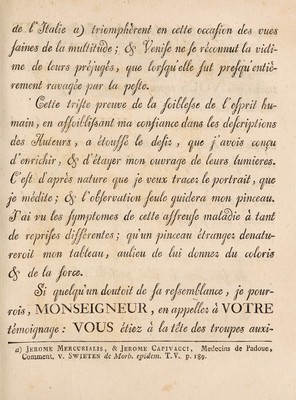 de l'Italie a) triomphèrent en cette occasion des vues
saines de la multitude; & Venise ne se réconnut la victi-
me de leurs préjugés, que lorsqu'elle fut presqu'entiè-
rement ravagée par la peste.
Cette triste preuve de la foiblesse de l'esprit hu-
main, en affoiblissant ma confiance dans les descriptions
des Auteurs, a étouffé le desir, que j'avois conçu
d'enrichir, & d'étayer mon ouvrage de leurs lumieres.
C'est d'après nature que je veux tracer le portrait, que
je médite; & l'observation seule guidera mon pinceau.
J'ai vu les symptomes de cette affreuse maladie à tant
de reprises différentes; qu'un pinceau étranger denatu-
reroit mon tableau, aulieu de lui donner du coloris
& de la force.
Si quelqu'un doutoit de sa ressemblance, je pour-
rois, MONSEIGNEUR, en appeller à VOTRE
témoignage: VOUS étiez à la tête des troupes auxi-
a) JEROME MERCURIALIS, & JEROME CAPIVACCI, Medecins de Padoue,
Comment. V. SWIETEN de Morb. epidem. T. V. p. 189.